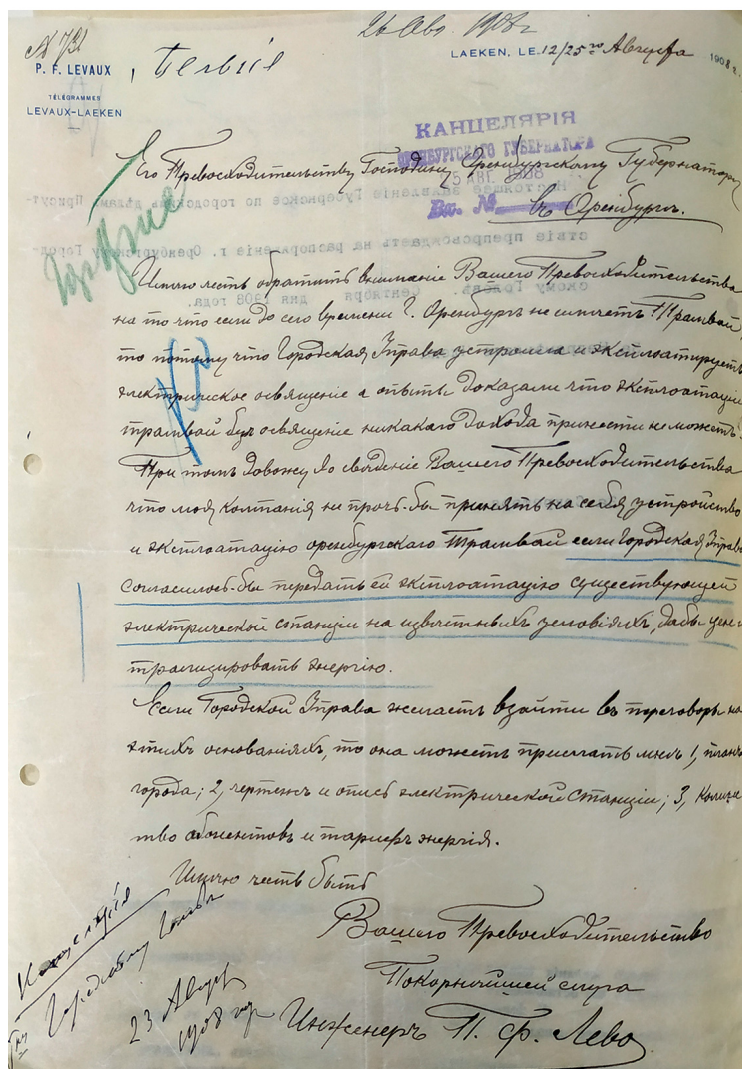 26 Авг. 1908 г.
№ 731
P. F. LEVAUX
, Бельгія
LAEKEN, LE 12/25го Августа 1908 г.
TÉLÉGRAMMES
LEVAUX-LAEKEN
КАНЦЕЛЯРІЯ
ОРЕНБУРГСКАГО ГУБЕРНАТОРА
5 АВГ. 1908
Вх. №
Его Превосходительству Господину Оренбургскому Губернатору
въ Оренбургъ.
Настоящее заявленіе Губернское по городскимъ дѣламъ Присут-
ствіе препровождаетъ на распоряженіе г. Оренбургскому Город-
скому Головѣ. Сентября дня 1908 года.
Имѣю честь обратить вниманіе Вашего Превосходительства
на то что если до сего времени Г. Оренбургъ не имѣетъ Трамвай,
то потому что Городская Управа устроила и эксплоатируетъ
электрическое освященіе а опыты доказали что эксплоатація
трамвай безъ освященіе никакаго дохода принести не можетъ.
При томъ довожу до сведеніе Вашего Превосходительства
что моя компанія не прочь-бы принять на себя устройство
и эксплоатацію оренбургскаго трамвай если Городская Управа
согласилось-бы передать ей эксплоатацію существующей
электрической станціи на извѣстныхъ условіяхъ, дабы цен-
трализировать энергію.
Если Городской Управа желаетъ взойти въ переговоры на
этихъ основаніяхъ, то она можетъ прислать мнѣ 1, планъ
города; 2, чертежъ и опись электрической станціи; 3, количес
тво абонентовъ и тарифъ энергія.
Имѣю честь быть
Вашего Превосходительство
Покорнѣйшей слуга
Инженеръ П. Ф. Лево
Городскому Головѣ
23 Август
1908 год